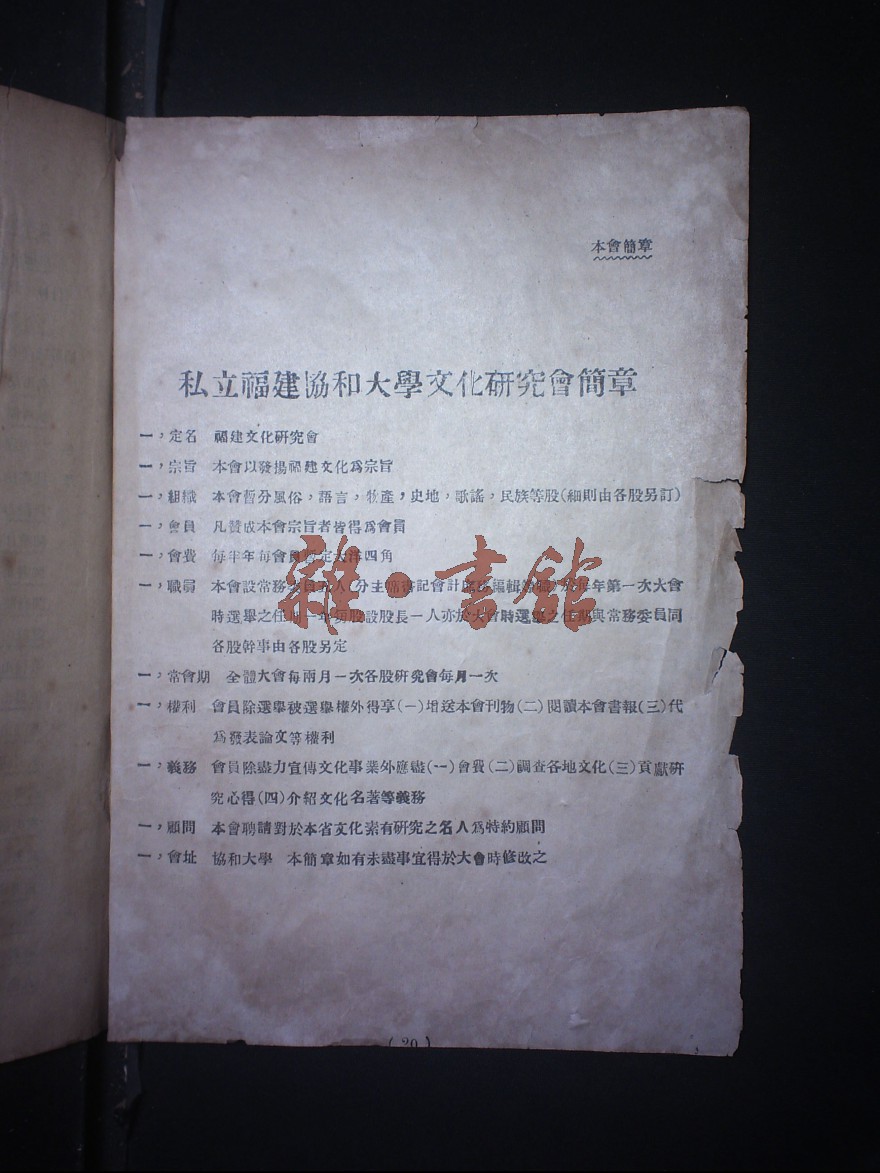 本會簡章
私立福建協和大學文化研究會簡章
一，定名 福建文化研究會
一，宗旨 本會以發揚福建文化爲宗旨
一，組織 本會暫分風俗，語言，物產，史地，歌謠，民族等股(細則由各股另訂)
一，會員 凡贊成本會宗旨者皆得爲會員
一，會費 每半年每會員暫定大洋四角
一，職員 本會設常務委員五人(分主席書記會計 編輯等職)於每年第一次大會
時選舉之任期一年每股設股長一人亦於大會時選舉之任期與常務委員同
各股幹事由各股另定
一，常會期 全體大會每兩月一次各股研究會每月一次
一，權利 會員除選舉被選舉權外得享(一)增送本會刊物(二)閱讀本會書報(三)代
爲發表論文等權利
一，義務 會員除盡力宣傳文化事業外應盡(一)會費(二)調查各地文化(三)貢獻研
究心得(四)介紹文化名著等義務
一，顧問 本會聘請對於本省文化素有研究之名人爲特約顧問
一，會址 協和大學 本簡章如有未盡事宜得於大會時修改之
(20)
雜·書館